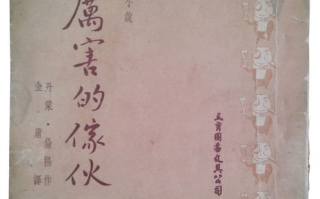 小說
厲害的傢伙
丹蒙•倫揚作
金•康譯
三育圖書文具公司